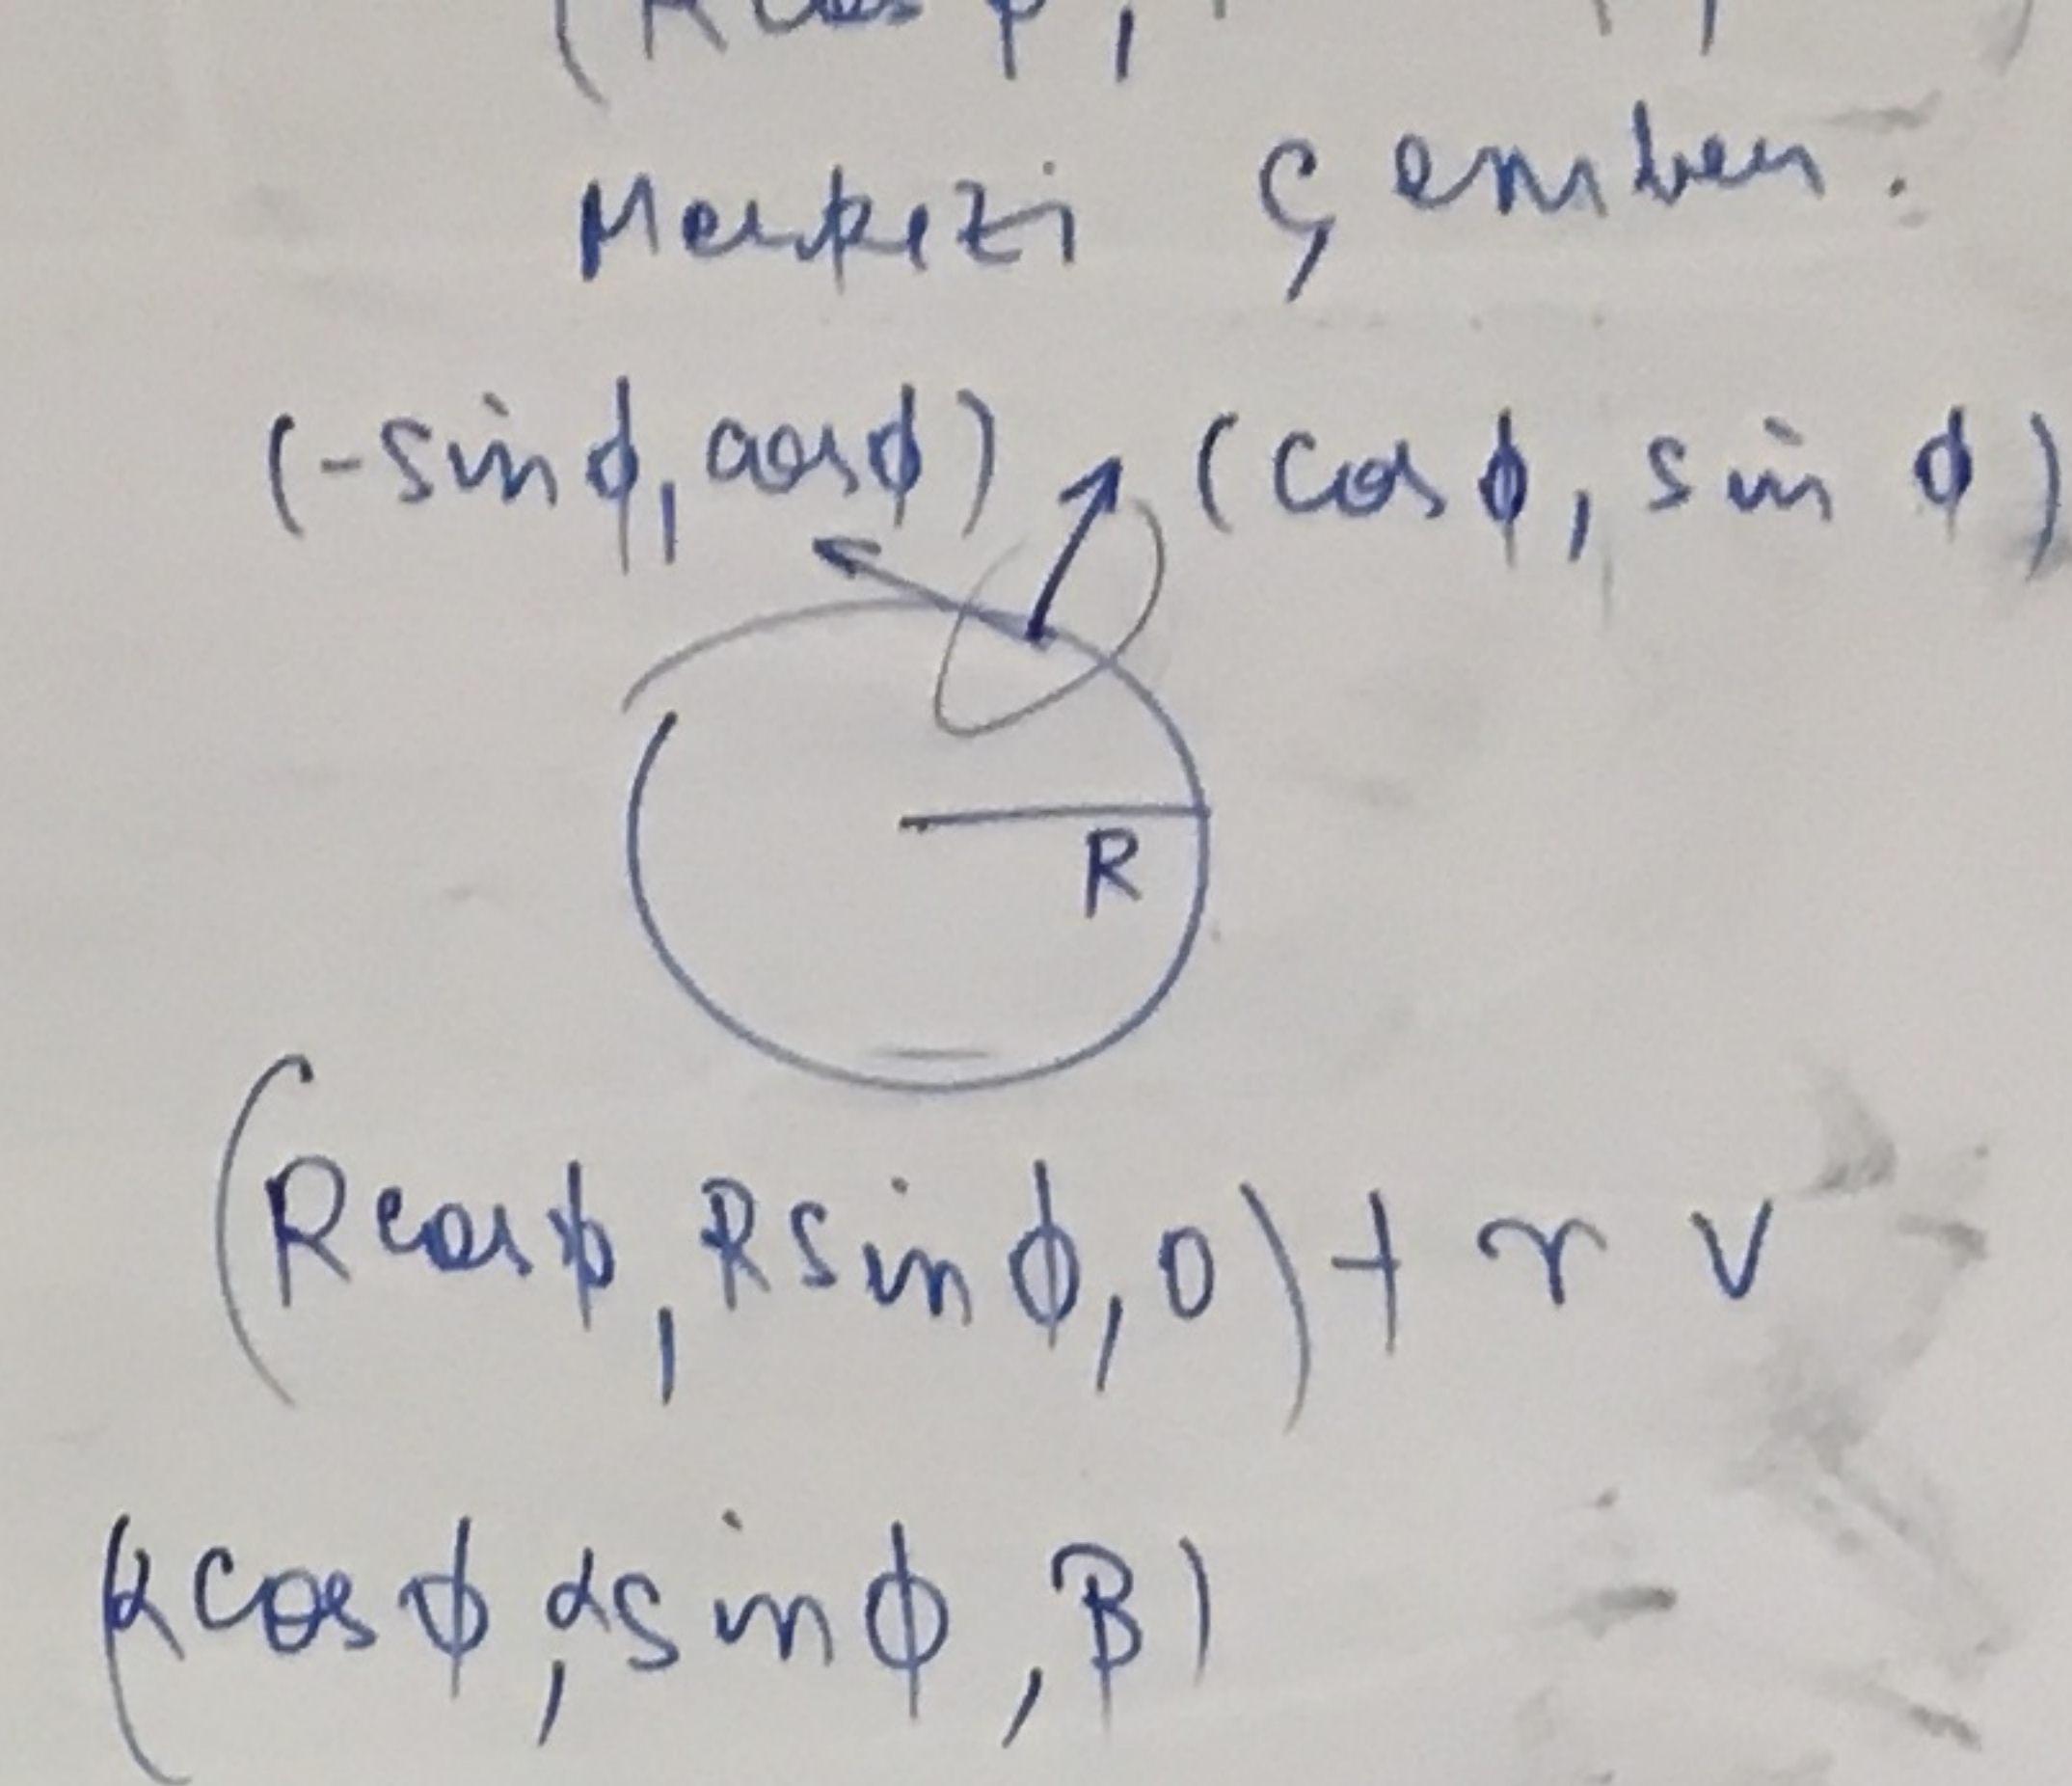 (Rcosφ,
Merkezi Çember.
(-sinϕ, cosϕ) (cosϕ, sin ϕ)
R
(Rcosϕ, Rsinϕ, 0) + r v
(αcosϕ, αsinϕ, β)